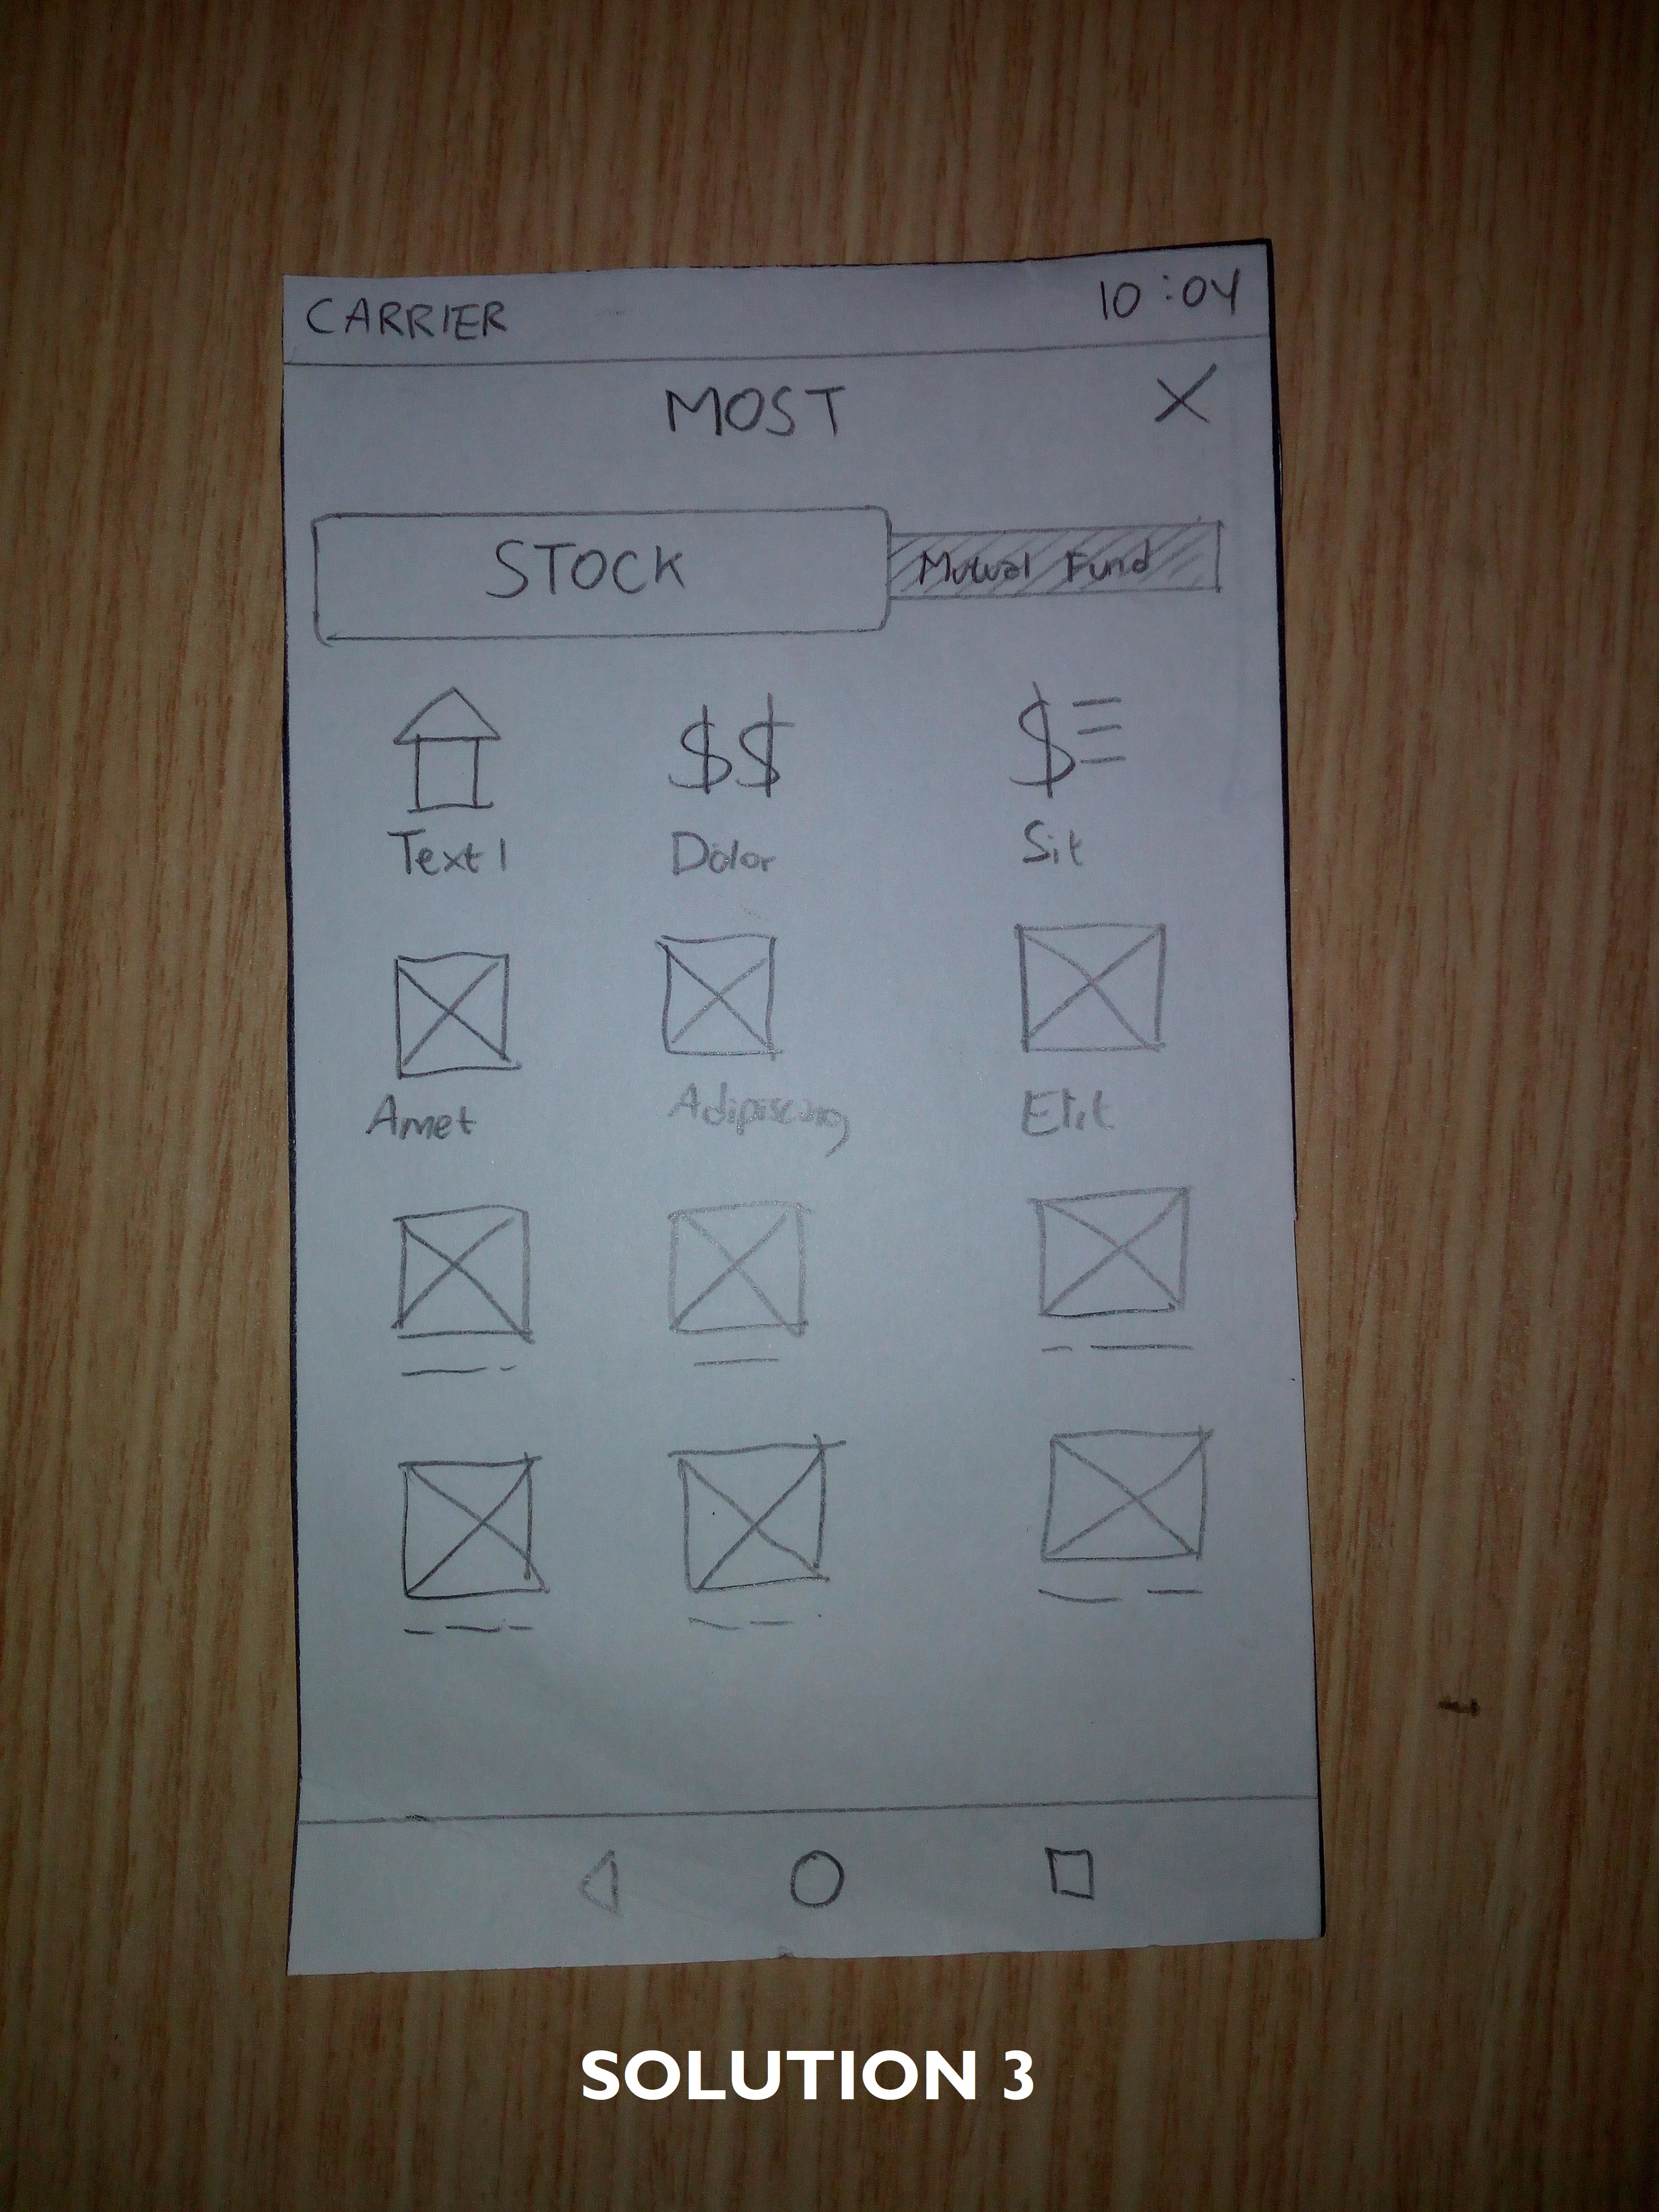 CARRIER 10:04
MOST X
STOCK Mutual Fund
Text 1 Dolor Sit
Amet Adipiscing Elit
SOLUTION 3